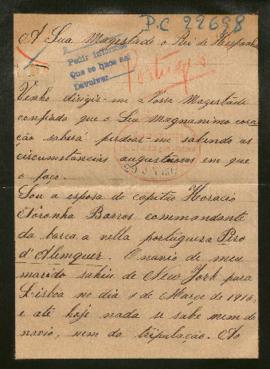 P.C 22698
A Sua Magestade o Rei de Hespanha
Pedir informes
Que se hace así
Devolver
Portugues
Venho dirigir-me Vossa Magestade
confiada que o Seu magnanimo cora
ção saberá perdoar-me sabendo as
circumstáncias angustiosas em que
o faço.
Sou a esposa do capitão Horacio
Noronha Barros commandante
da barca a vella portuguesa Pero
d'Alemquer. O navio de meu
marido sahiu de New York para
Lisboa no dia 1 de Março de 1916,
e até hoje nada se sabe nem do
navio, nem da tripulação. Ao